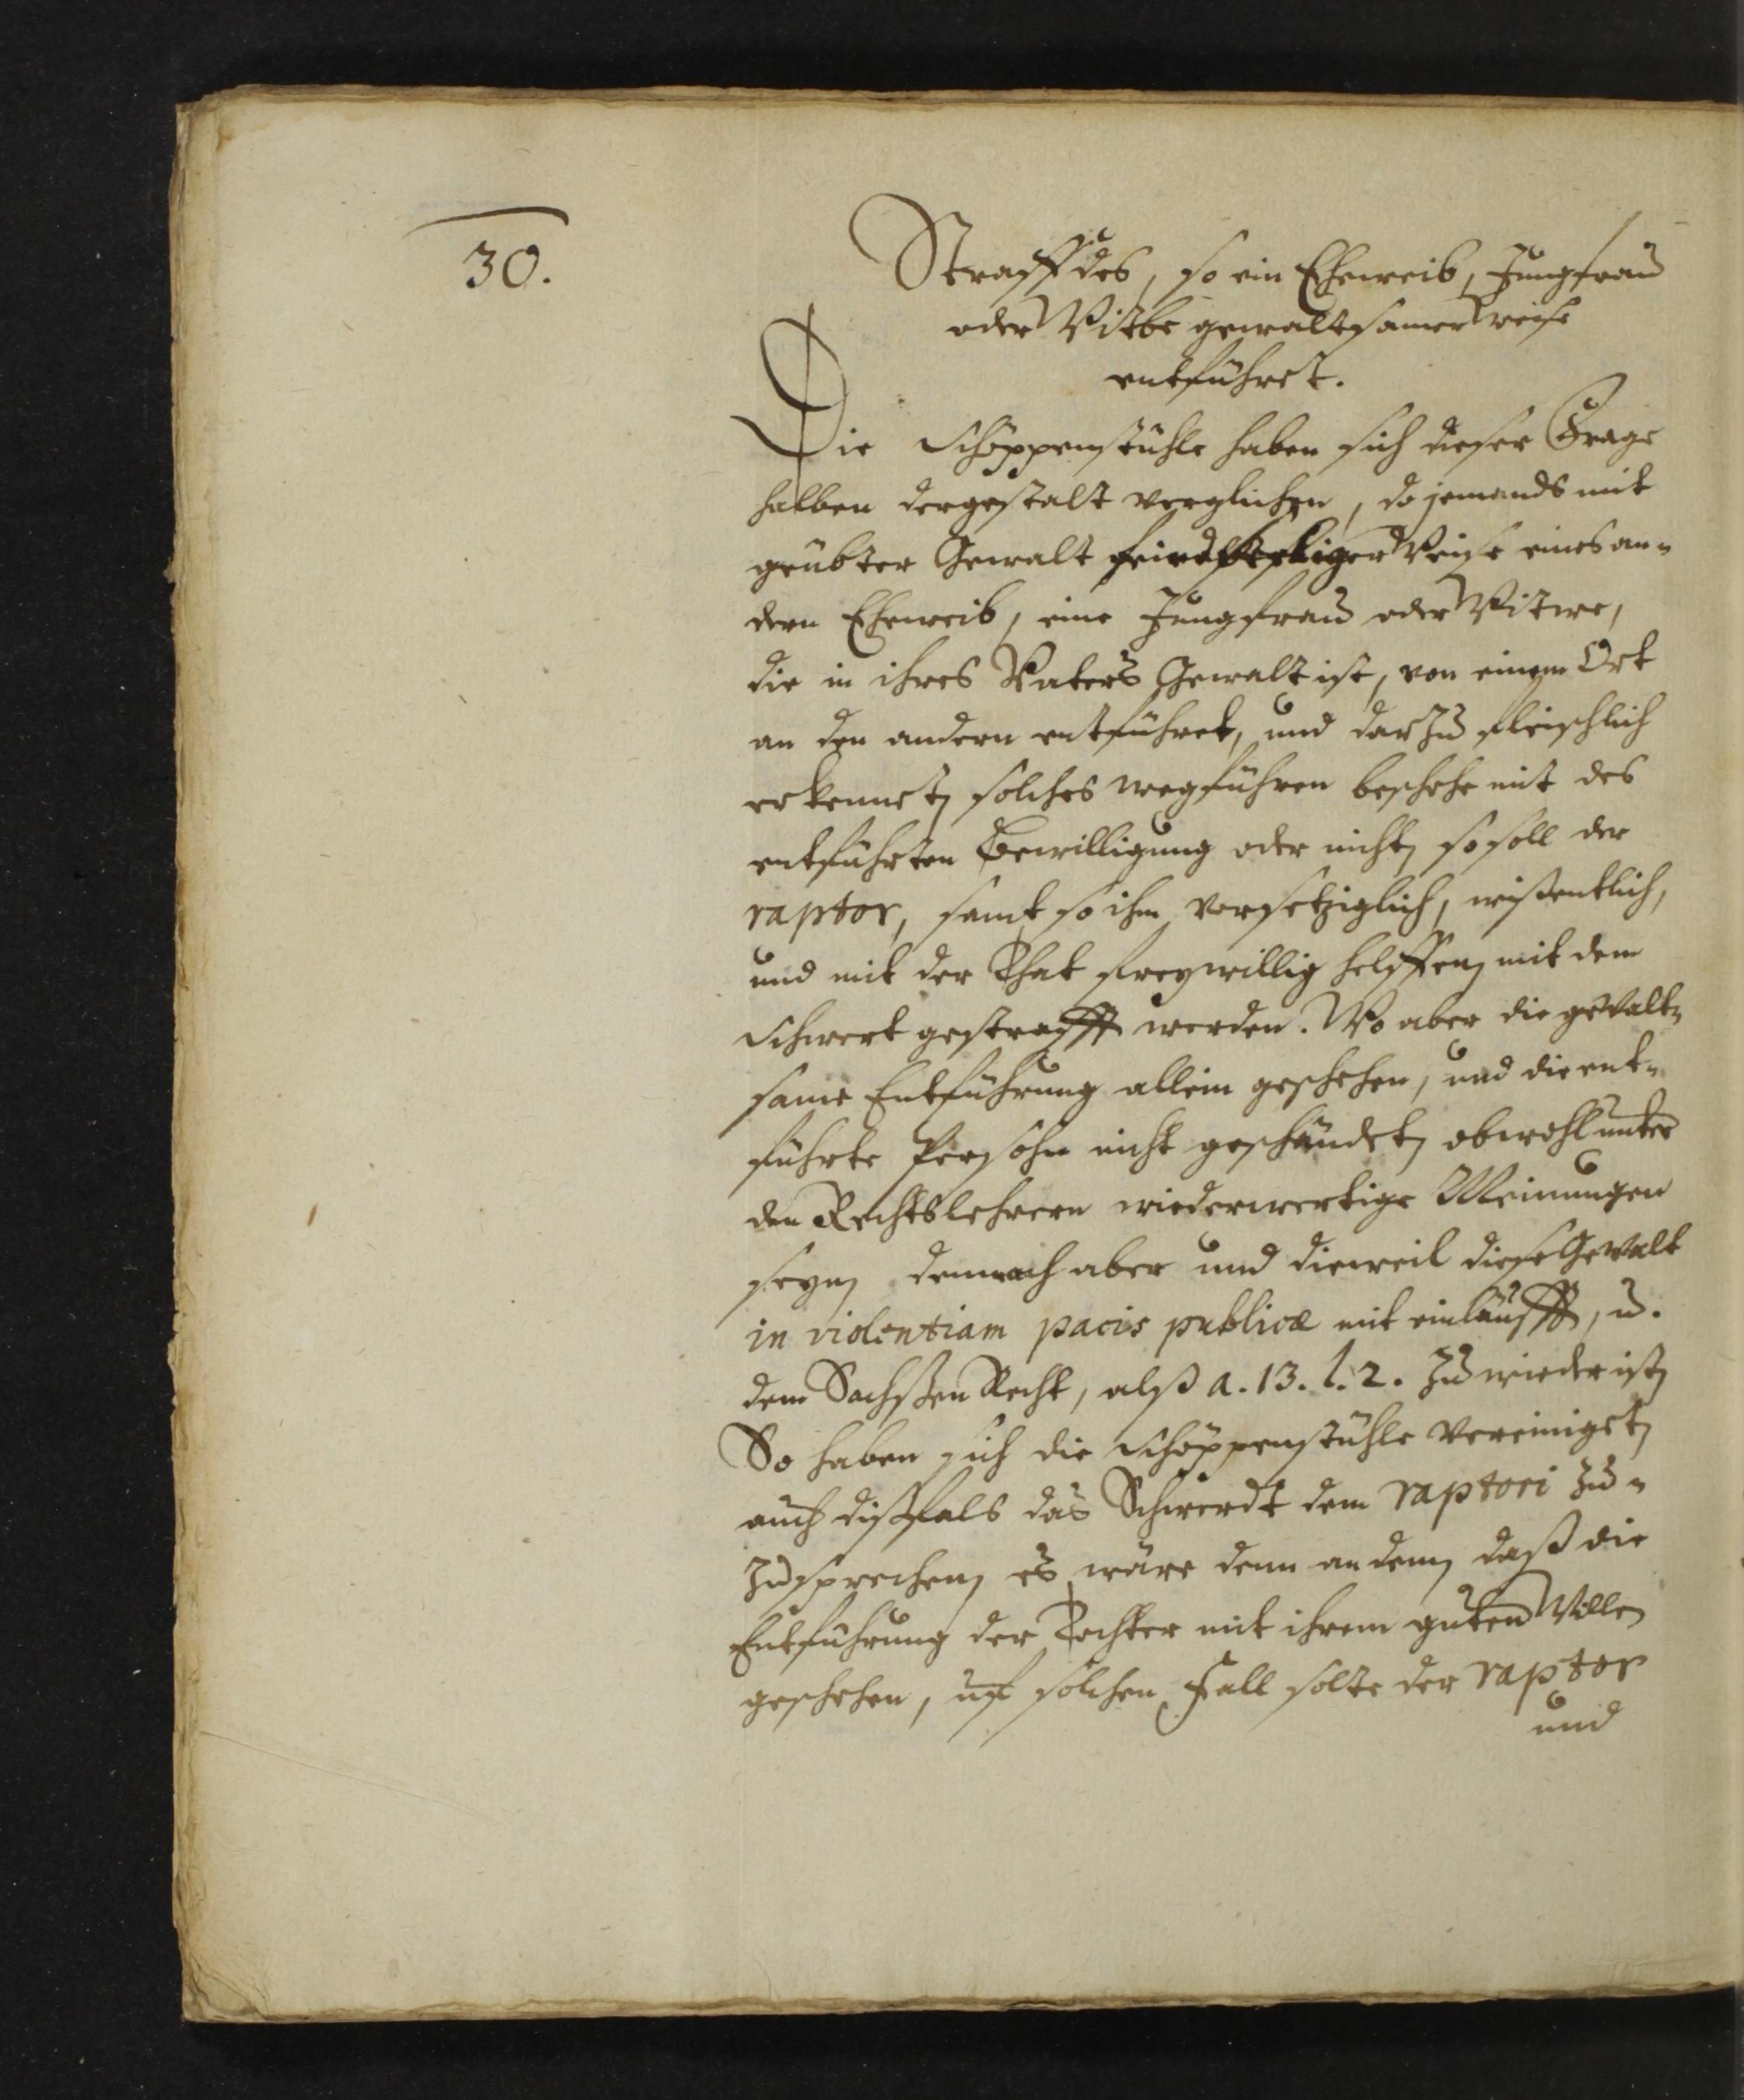 30.
Straff des, so ein Eheweib, Jungfrau
oder Witbe gewaltsamer Weise
entführet.
Die Schöppenstühle haben sich dieser Frage
halben dergestalt verglichen, do jemands mit
geübter Gewalt Weise eines an-
dern Eheweib, eine Jungfrau oder Witwe,
die in ihres Vaters Gewalt ist, von einem Ort
an den andern entführet, und darzu fleischlich
erkennet, solches wegführen beschehe mit des
entführten Bewilligung oder nicht, so soll der
raptor, samt so ihm vorsetziglich, wißentlich,
und mit der That freywillig helffen, mit dem
Schwert gestrafft werden. Wo aber die gewalt-
same Entführung allein geschehen, und die ent-
führte Persohn nicht geschändet, obwohl unter
den Rechtslehrern wiederwertige Meinungen
seyn, dennoch aber und dieweil diese Gewalt
in violentiam pacis publicæ mit einläufft, u.
dem Sachßen Recht, alß a. 13. l. 2. zu wieder ist,
So haben sich die Schöppenstühle vereiniget,
auch dißfals das Schwerdt dem raptori zu-
zusprechen, es wäre denn an dem, daß die
Entführung der Tochter mit ihrem guten Willen
geschehen, uf solchen Fall solte der raptor
und